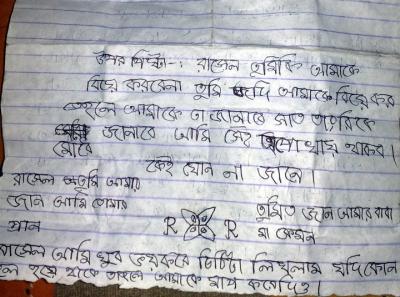 অপর পিষ্টা-: রাজেল তুমিকি আমাকে
বিয়ে করবেনা তুমি যদি আমাকে বিয়ে কর
তেহলে আমাকে তা জানাবে সাত তারিকে
জানাবে আমি সেই থাকব।
মোবে কেই যেন না জানে।
রাজেল তুমি আমার
জান আমি তোমার
প্রান
R R
তুমিত জান আমার বাবা
মা কেমন
রাজেল আমি খুব ভয়করে চিটিটা লিখলাম যদি কোন
হয়ে থাকে তাহলে আমাকে মাপ করেদিও।